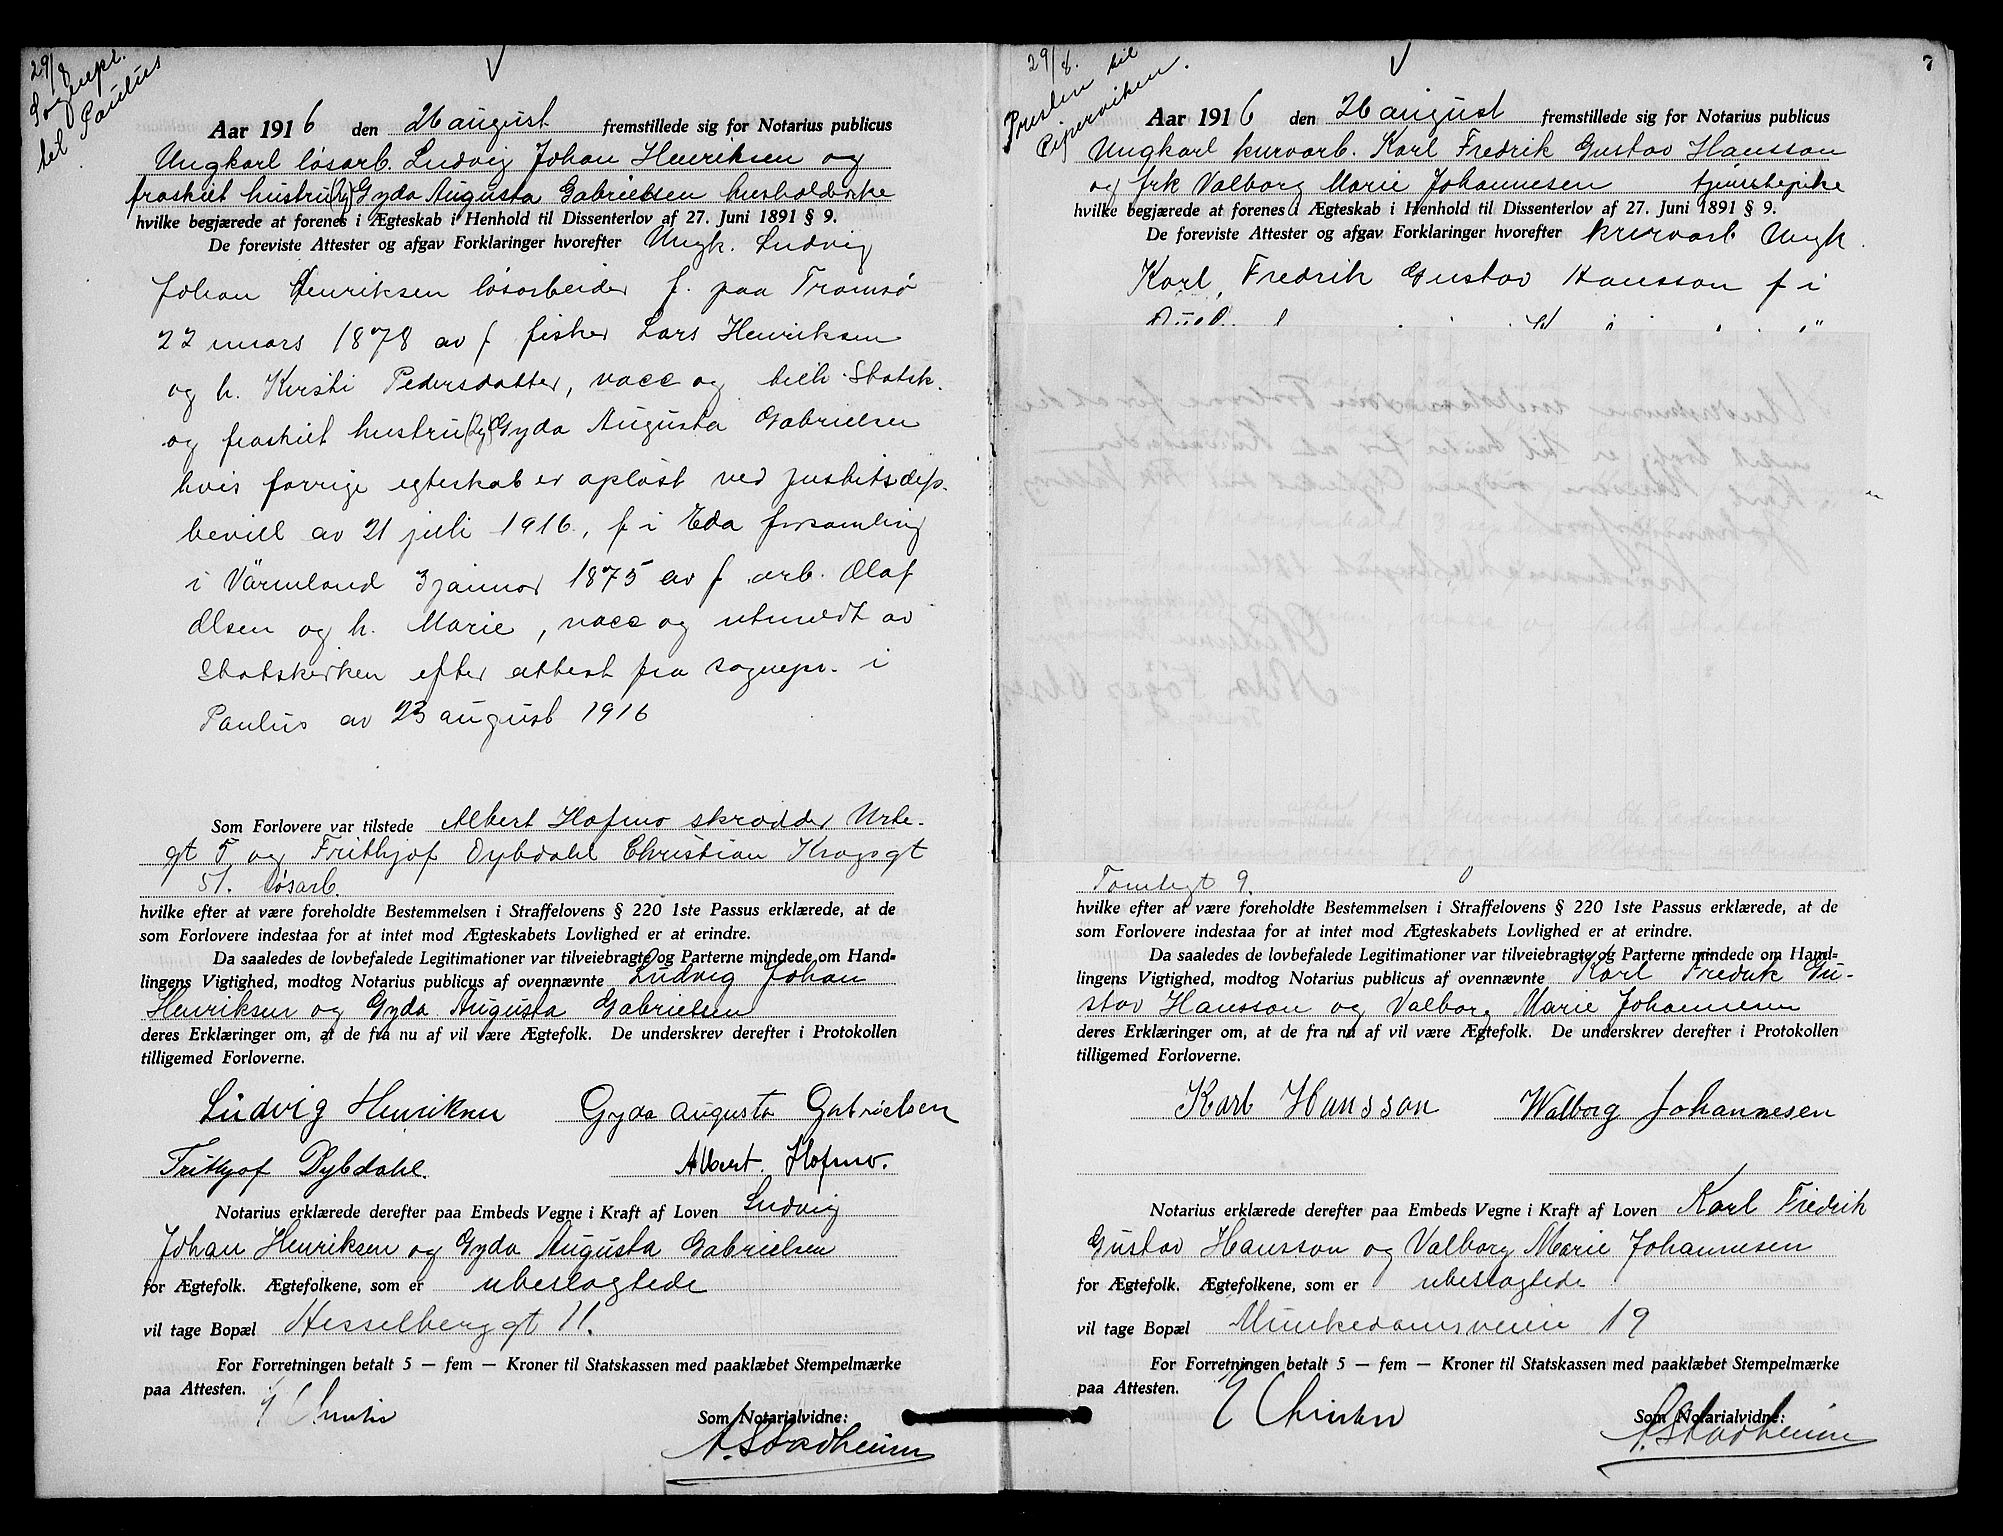 29/8
Sognepr.
til Paulus
Aar 1916 den 26 august fremstillede sig for Notarius publicus
Ungkarl løsarb. Ludvig Johan Henriksen og
fraskilt hustru Gyda Augusta Gabrielsen husholderske
hvilke begjærede at forenes i Ægteskab i Henhold til Dissenterlov af 27. Juni 1891 § 9.
De foreviste Attester og afgav Forklaringer hvorefter Ungk. Ludvig
Johan Henriksen løsarbeider f. paa Tromsø
22 mars 1878 av f fisker Lars Henriksen
og h. Kirsti Pedersdatter, vacc og tilh. Statsk.
og fraskilt hustru Gyda Augusta Gabrielsen
hvis forrige egteskab er opløst ved justitsdep.
bevill av 21 juli 1916, f i Eda forsamling
i Värmland 3 januar 1875 av f. arb. Olaf
Olsen og h. Marie, vacc og utmeldt av
Statskirken efter attest fra sognepr. i
Paulus av 23 august 1916
Som Forlovere var tilstede Albert Hofmo skrædder Urte-
gt 5 og Frithjof Dybdahl Christian Krogsgt
51. løsarb.
hvilke efter at være foreholdte Bestemmelsen i Straffelovens § 220 1ste Passus erklærede, at de
som Forlovere indestaa for at intet mod Ægteskabets Lovlighed er at erindre.
Da saaledes de lovbefalede Legitimationer var tilveiebragte og Parterne mindede om Hand-
lingens Vigtighed, modtog Notarius publicus af ovennævnte Ludvig Johan
Henriksen og Gyda Augusta Gabrielsen
deres Erklæringer om, at de fra nu af vil være Ægtefolk. De underskrev derefter i Protokollen
tilligemed Forloverne.
Ludvig Henriksen Gyda Augusta Gabrielsen
Frithjof Dybdahl. Albert Hofmo.
Notarius erklærede derefter paa Embeds Vegne i Kraft af Loven Ludvig
Johan Henriksen og Gyda Augusta Gabrielsen
for Ægtefolk. Ægtefolkene, som er ubeslægtede
vil tage Bopæl Hesselberggt 11.
For Forretningen betalt 5 — fem — Kroner til Statskassen med paaklæbet Stempelmærke
paa Attesten.
Som Notarialvidne:
A. Stadheim
7
29/8.
Presten til
Pipervviken.
Aar 1916 den 26 august fremstillede sig for Notarius publicus
Ungkarl kurvarb. Karl Fredrik Gustav Hansson
og frk Valborg Marie Johannesen tjenestepike
hvilke begjærede at forenes i Ægteskab i Henhold til Dissenterlov af 27. Juni 1891 § 9.
De foreviste Attester og afgav Forklaringer hvorefter kurvarb Ungk
Karl Fredrik Gustav Hansson f i
Tomtegt 9.
hvilke efter at være foreholdte Bestemmelsen i Straffelovens § 220 1ste Passus erklærede, at de
som Forlovere indestaa for at intet mod Ægteskabets Lovlighed er at erindre.
Da saaledes de lovbefalede Legitimationer var tilveiebragte og Parterne mindede om Hand-
lingens Vigtighed, modtog Notarius publicus af ovennævnte Karl Fredrik Gu-
stav Hansson og Valborg Marie Johannesen
deres Erklæringer om, at de fra nu af vil være Ægtefolk. De underskrev derefter i Protokollen
tilligemed Forloverne.
Karl Hansson Walborg Johannesen
Notarius erklærede derefter paa Embeds Vegne i Kraft af Loven Karl Fredrik
Gustav Hansson og Valborg Marie Johannesen
for Ægtefolk. Ægtefolkene, som er ubeslægtede
vil tage Bopæl Munkedamsveien 19
For Forretningen betalt 5 — fem — Kroner til Statskassen med paaklæbet Stempelmærke
paa Attesten.
Som Notarialvidne:
A. Stadheim